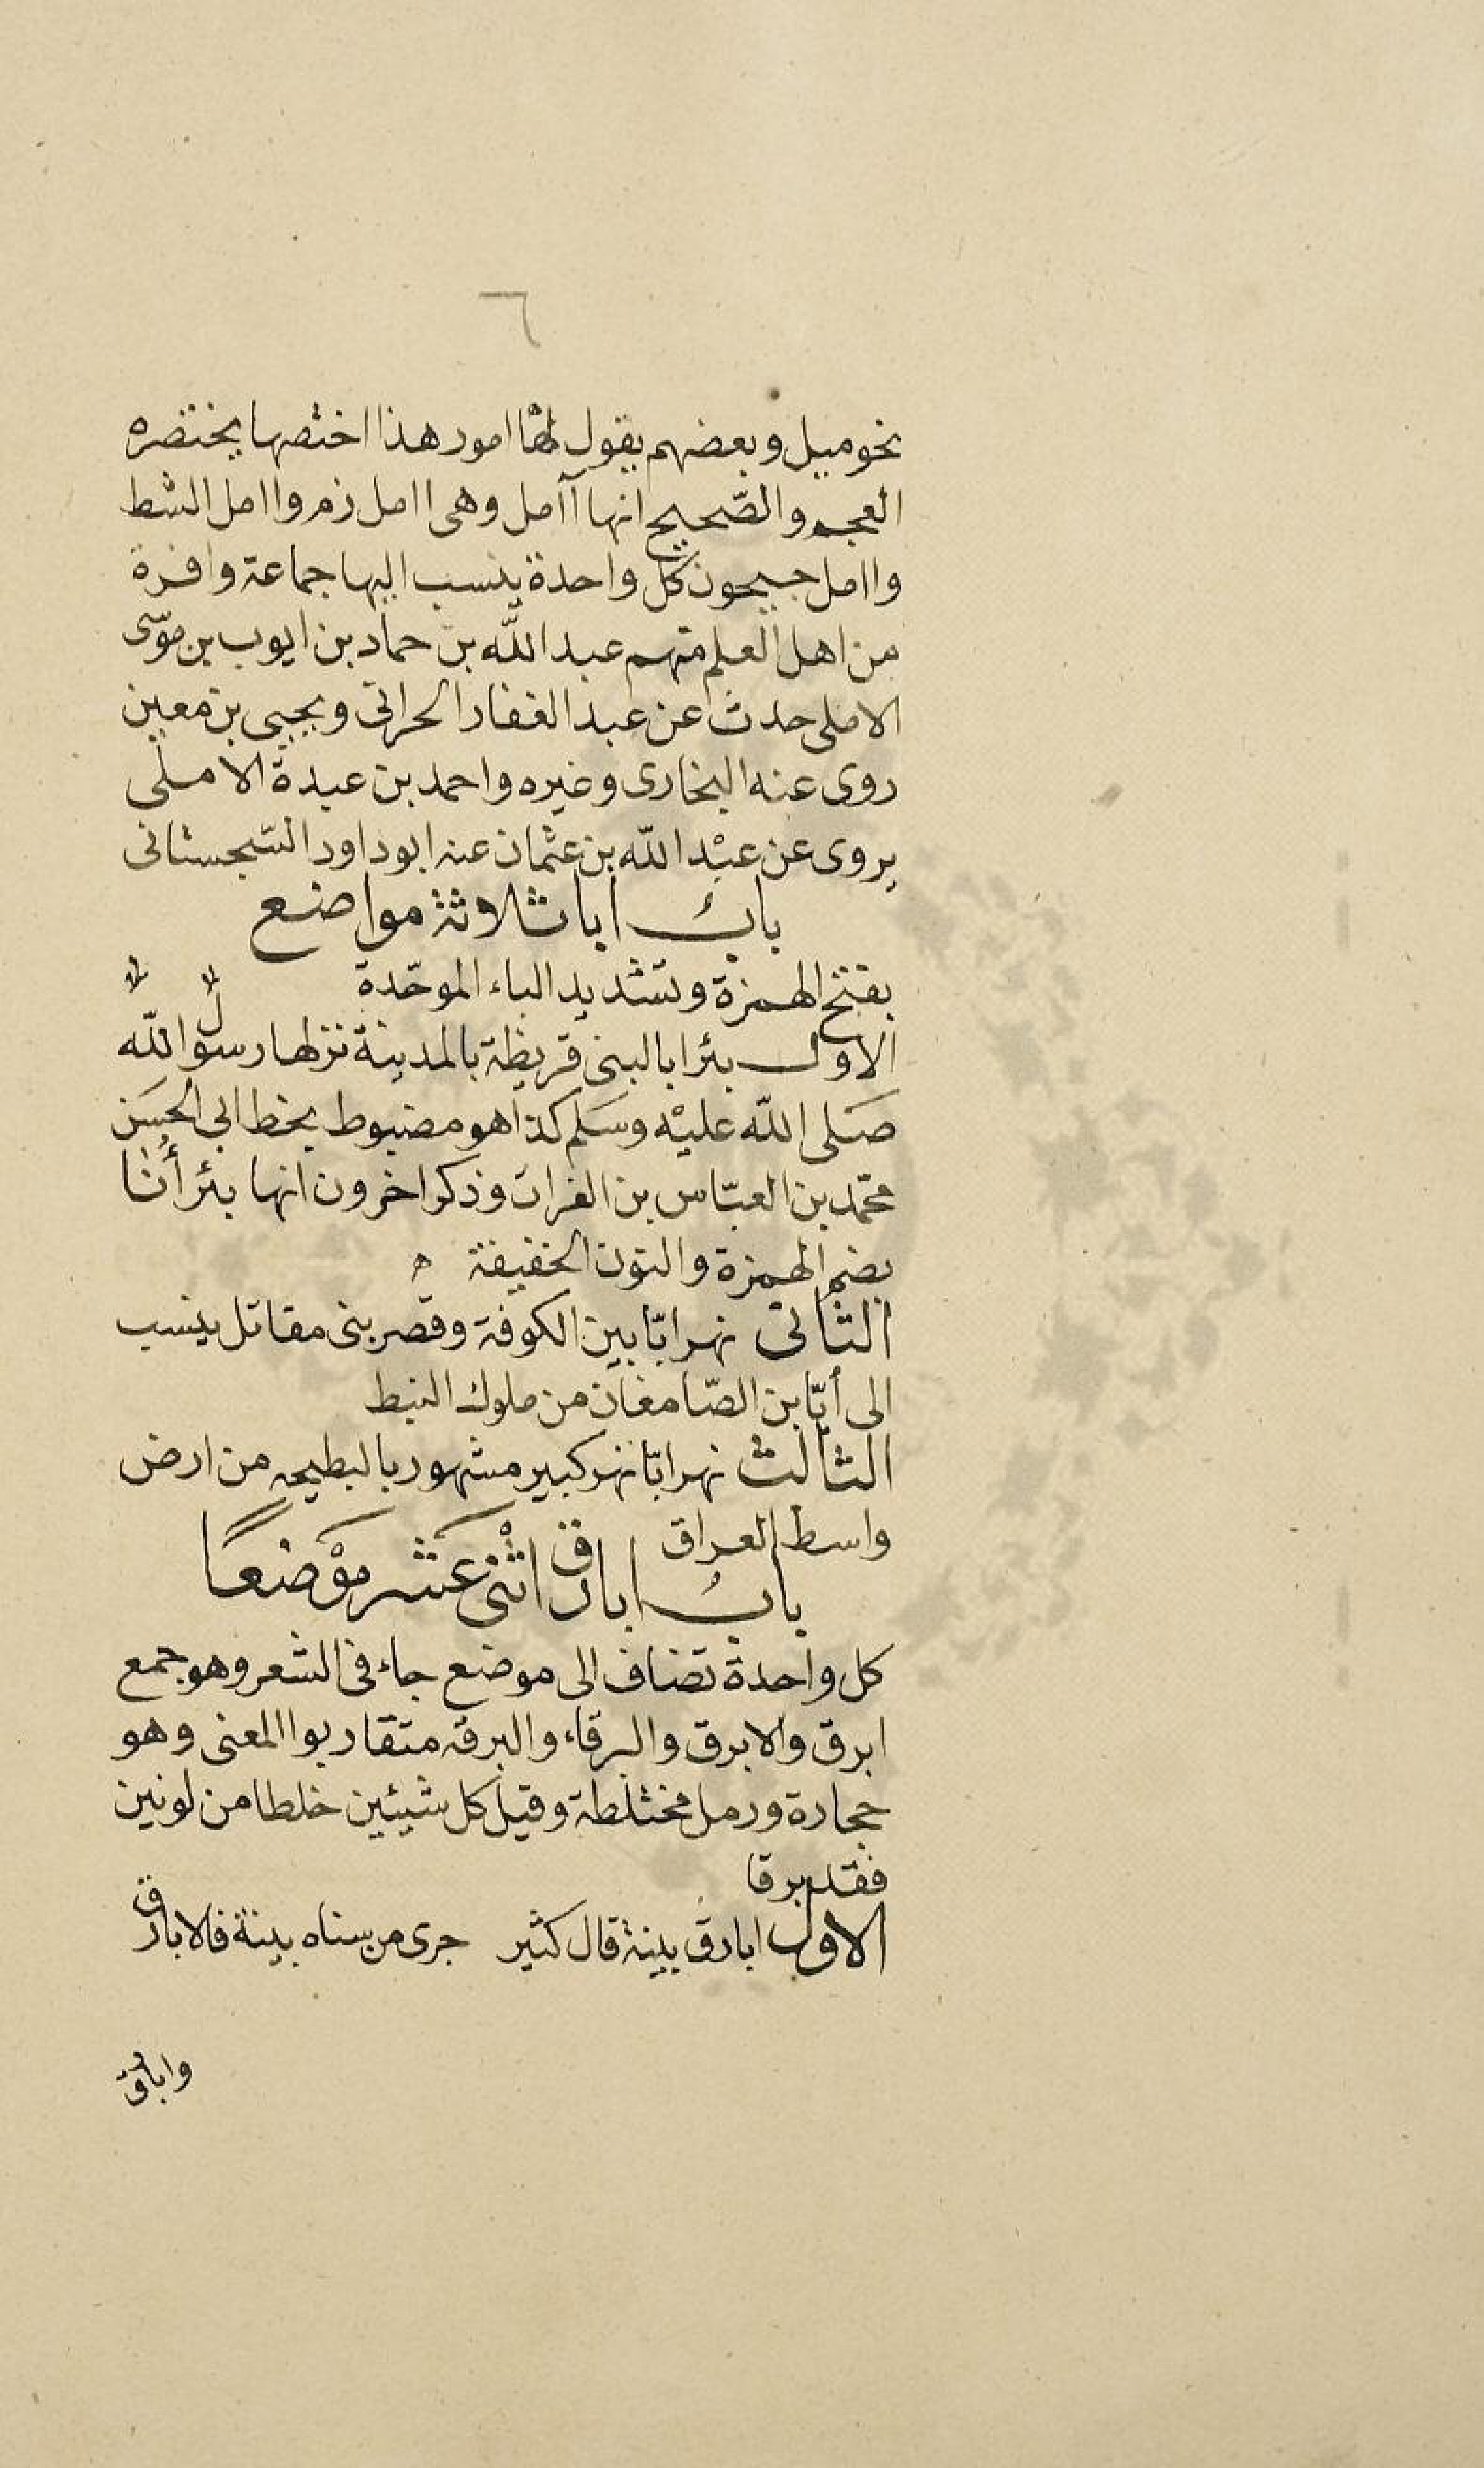 ٦
نحو ميل وبعضهم يقول لها امور هذا اختصها يختصره
العجم والصّحيح انها آامل وهى اامل زم واامل الشط
واامل جيحون كل واحدة ينسب اليها جماعة وافرة
من اهل العلم منهم عبد اللّه بن حماد بن ايوب بن موسى
الاملى حدث عن عبد الغفار الحرانى ويحيى بن معين
روى عنه البخارى وغيره واحمد بن عبدة الاملى
يروى عن عبْد اللّه بن عثمان عنه ابو داود السّجستانى
بابُ ابا ثلاثة مواضع
بفتح الهمزة وتشديد الباء الموحّدة
الاول بئر ابا لبنى قريظة بالمدينة نزلها رسول اللّه
صَلى اللّه عليْه وسَلم كذا هو مضبوط بخط ابى الحسَن
محمّد بن العبّاس بن الفرات وذكر اخرون انها بئر أُنا
بضم الهمزة والنون الخفيفة ه
الثانى نهر ابّا بين الكوفة وقصر بنى مقاتل ينسب
الى أبّا بن الصّامغان من ملوك النبط
الثالث نهر ابّا نهر كبير مشهور بالبطيحه من ارض
واسط العراق
بابُ ابارق اثْنى عَشر موْضعًا
كل واحدة تضاف الى موضع جاء فى الشعر وهو جمع
ابرق والابرق والبرقاء والبرقه متقاربوا المعنى وهو
حجارة ورمل مختلطة وقيل كل شيئين خلطا من لونين
فقد برقا
الاول ابارق بينة قال كثير جرى من سناه بينة فالابارق
وابارق